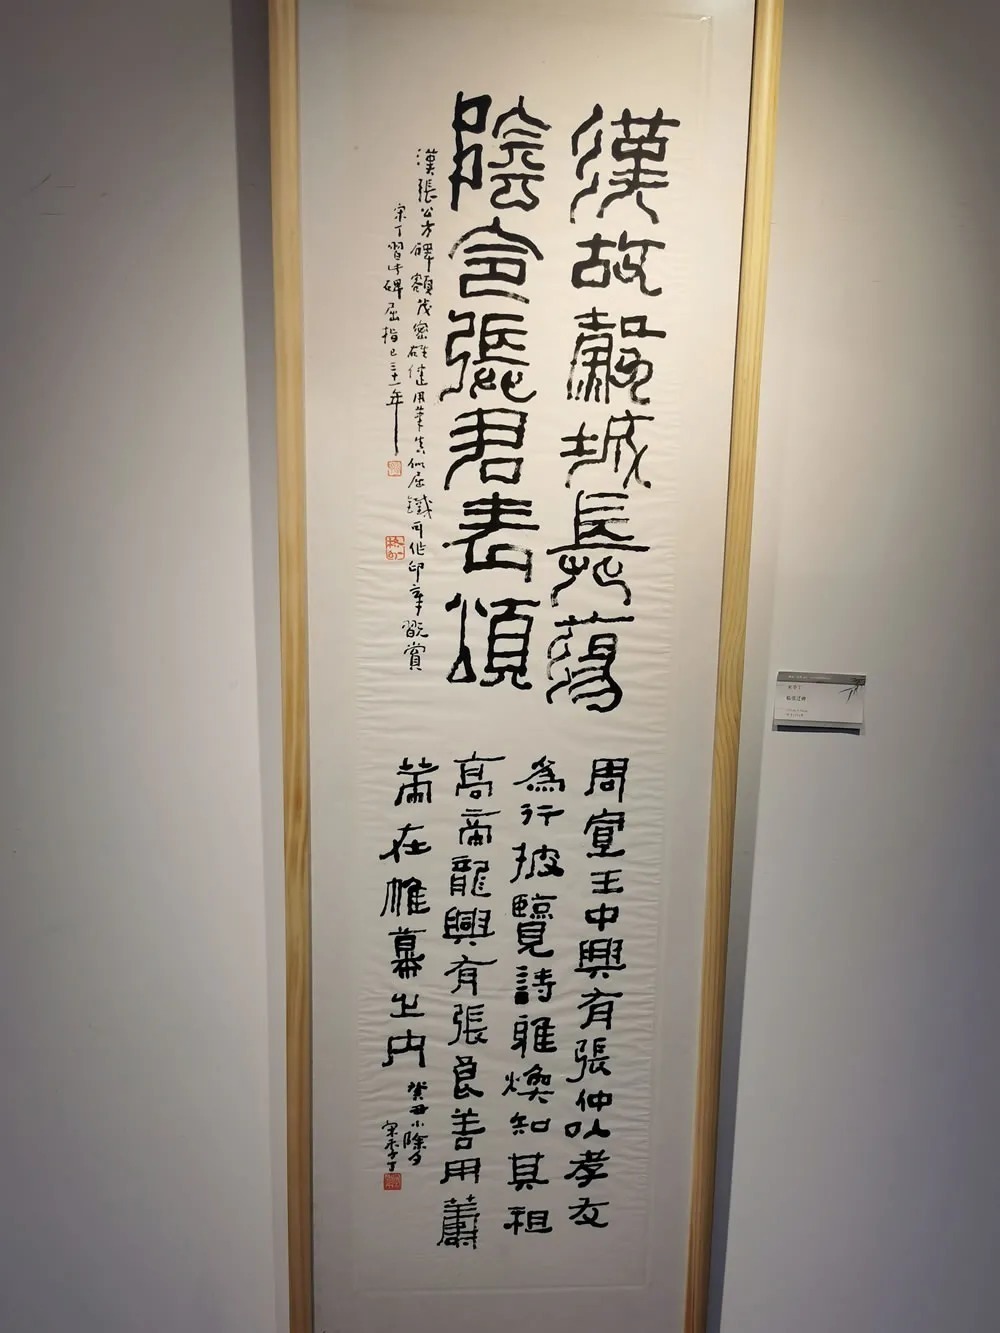 漢故穀城長蕩
陰令張君表頌
漢張公方碑額茂密雄健用筆真似屈鐵可作印章翫賞
宋丁習此碑屈指已三十一年
周宣王中興有張仲以孝友
為行披覽詩雅煥知其祖
高帝龍興有張良善用籌
策在帷幕之内 癸丑小除夕
宋季丁